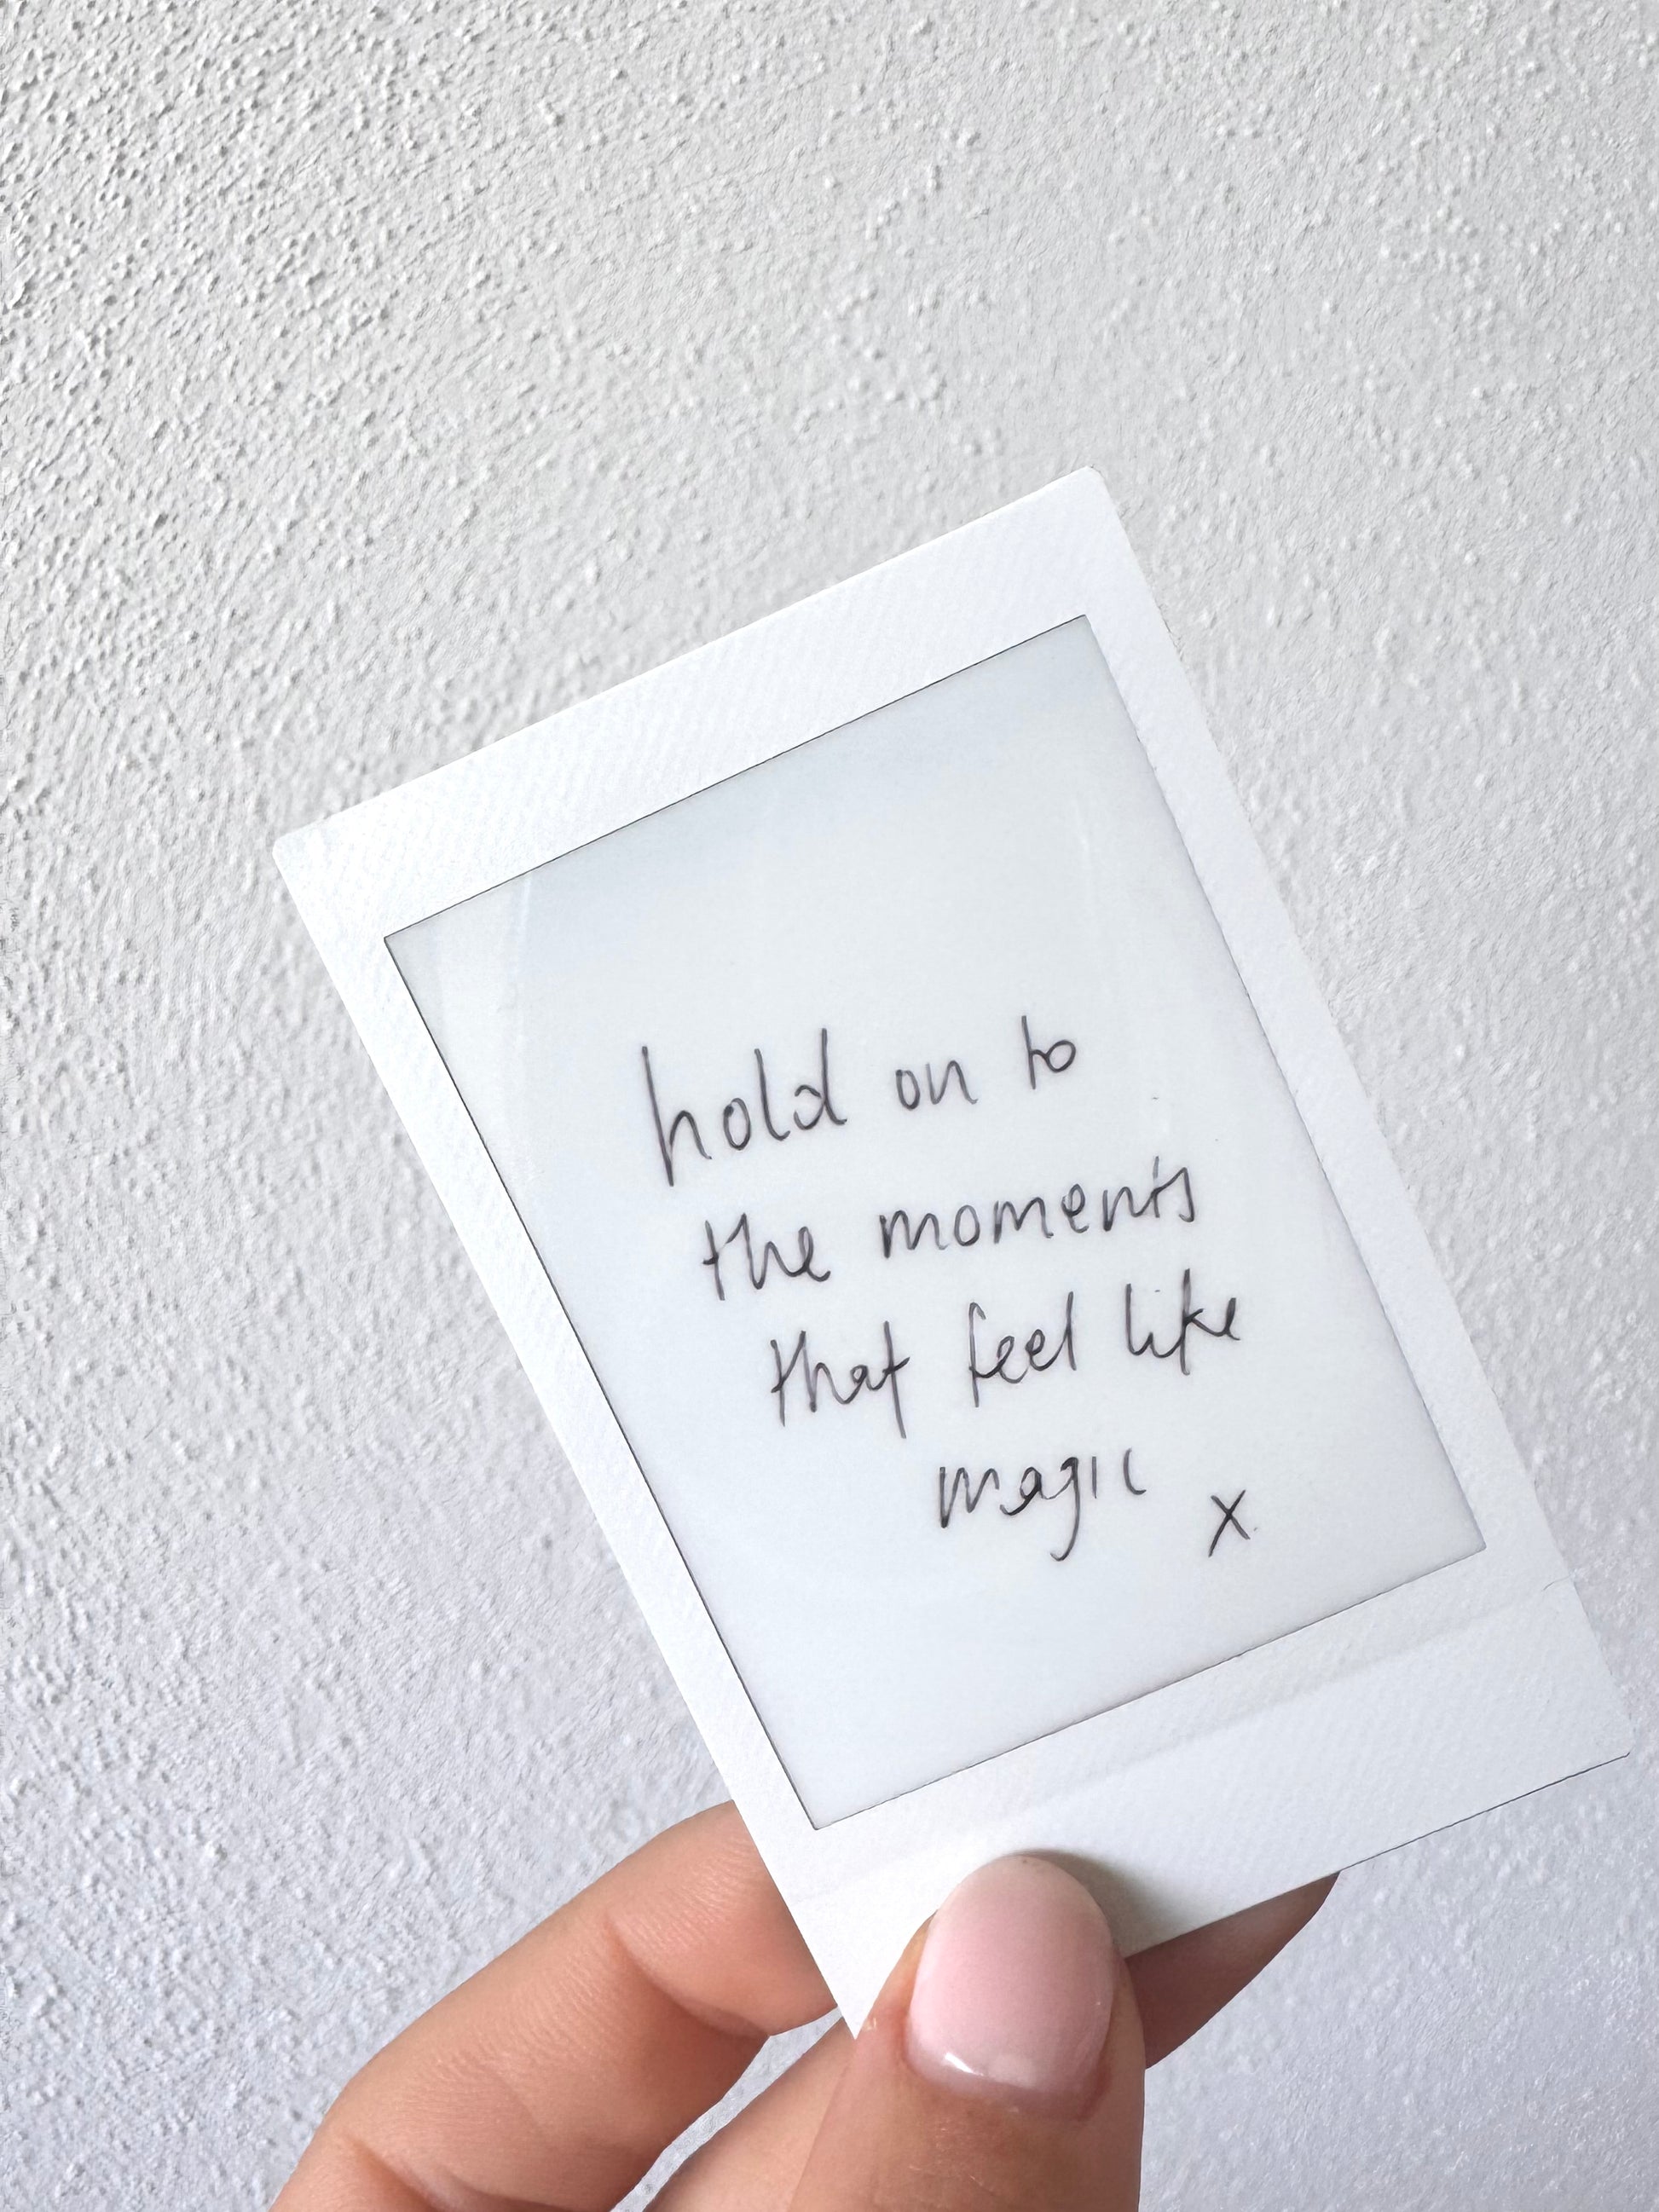 hold on to
the moments
that feel like
magic x